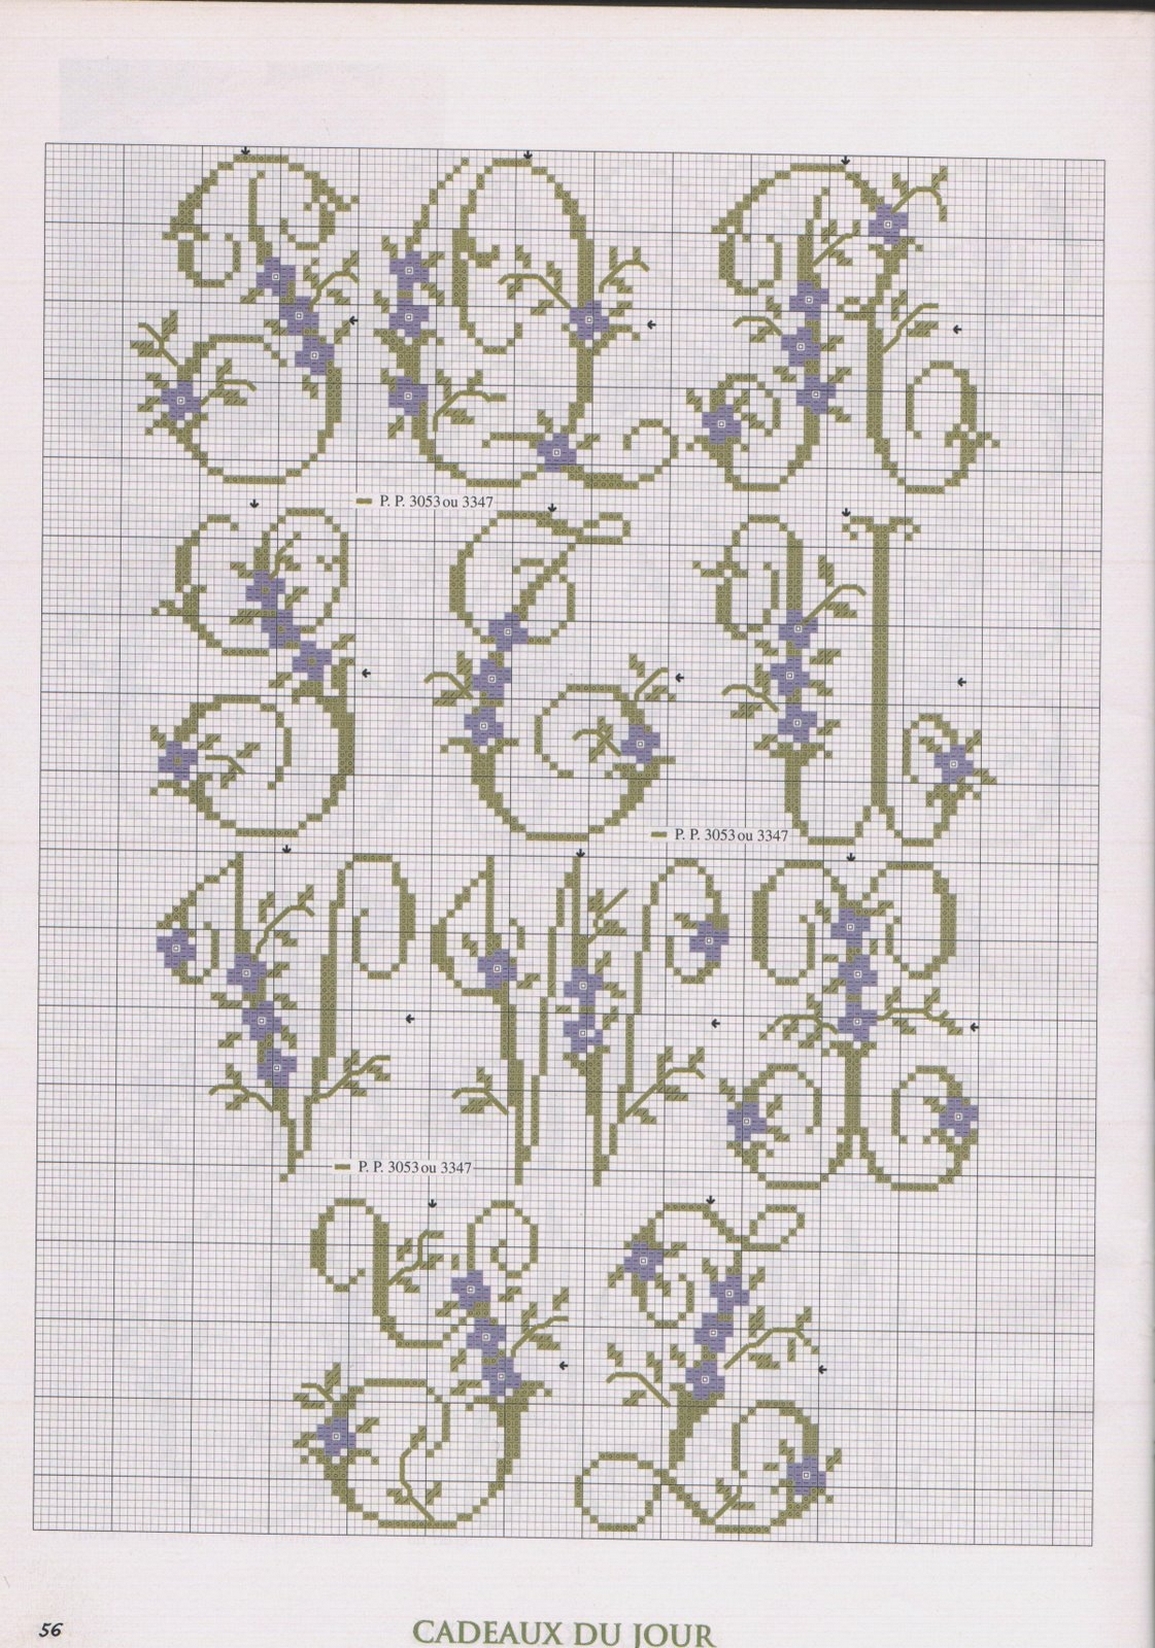 P. P. 3053 ou 3347
P. P. 3053 ou 3347
P. P. 3053 ou 3347
56
CADEAUX DU JOUR